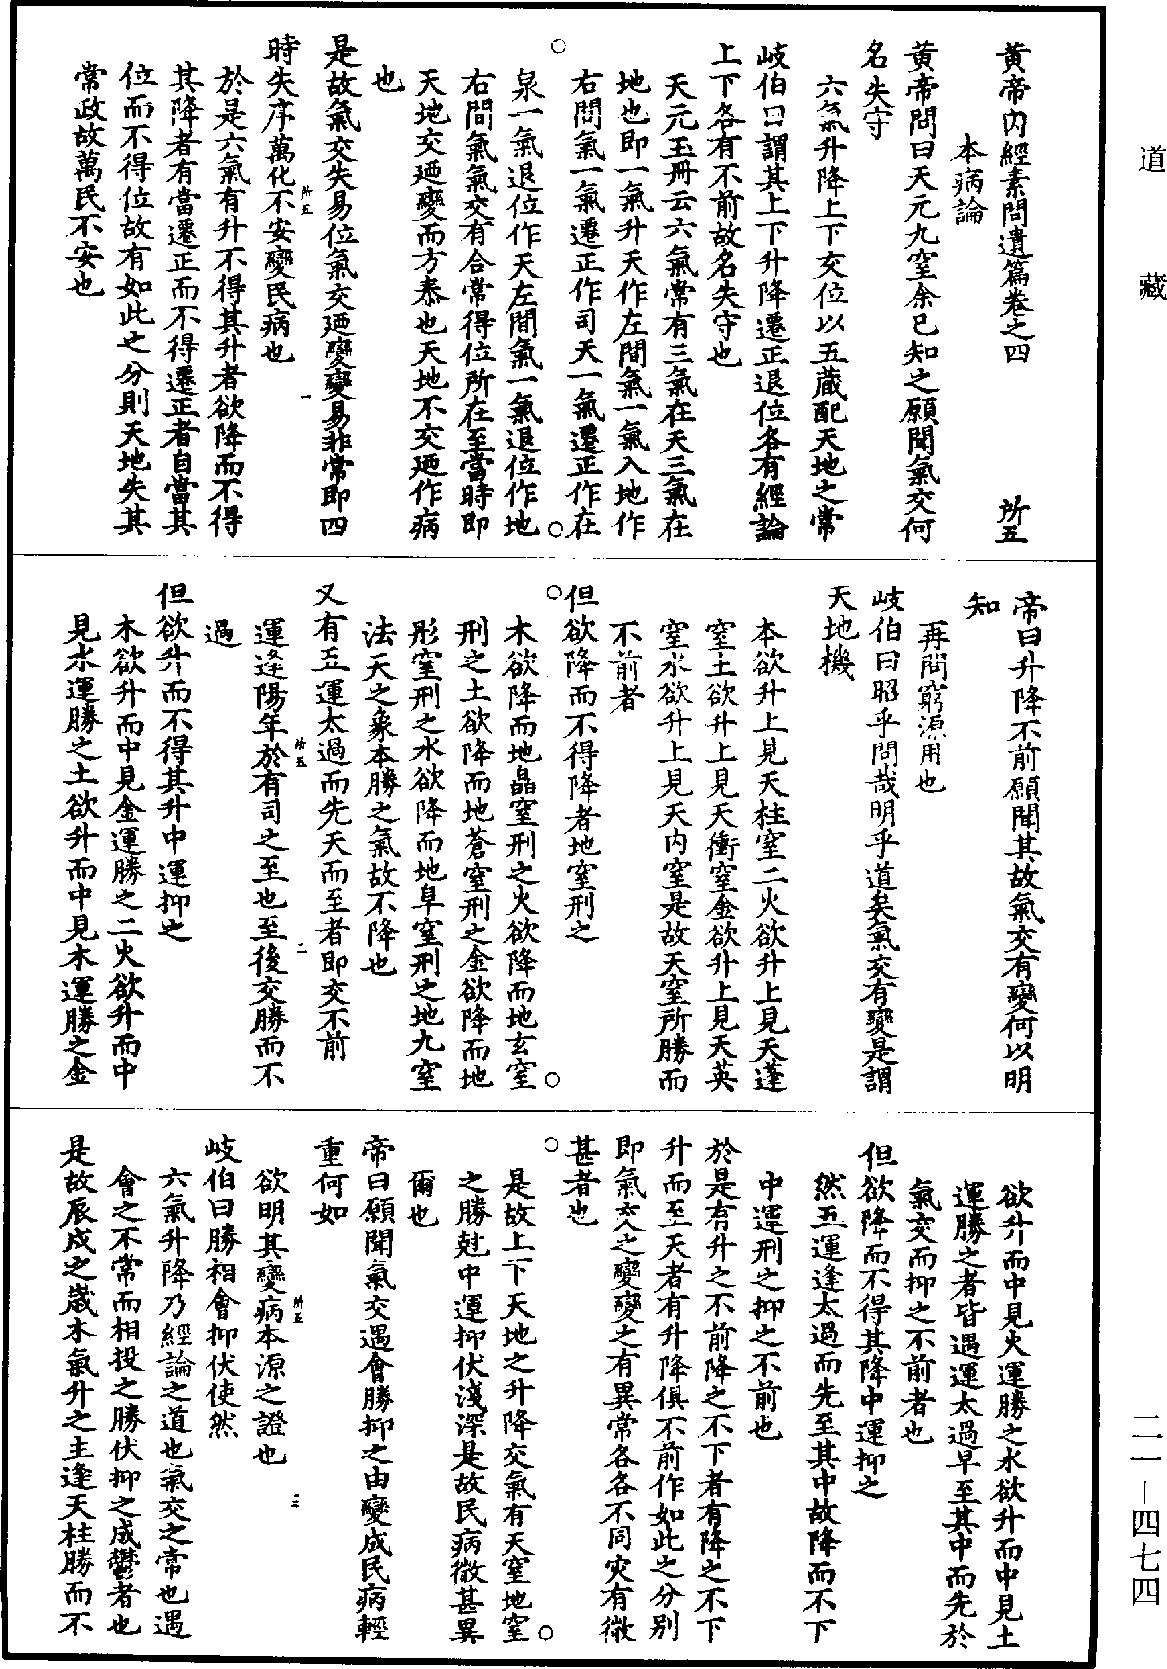 道藏
黄帝内經素問遺篇卷之四 所五
本病論
黄帝問曰天元九窒余已知之願聞氣交何
名失守
六氣升降上下交位以五蔵配天地之常
岐伯曰謂其上下升降遷正退位各有經論
上下各有不前故名失守也
天元玉冊云六氣常有三氣在天三氣在
地也即一氣升天作左間氣一氣入地作
右間氣一氣遷正作司天一氣遷正作在
泉一氣退位作天左間氣一氣退位作地
右間氣氣交有合常得位所在至當時即
天地交廼變而方泰也天地不交廼作病
也
是故氣交失易位氣交廼變變易非常即四
時失序萬化不安變民病也
所五 一
於是六氣有升不得其升者欲降而不得
其降者有當遷正而不得遷正者自當其
位而不得位故有如此之分則天地失其
常政故萬民不安也
帝曰升降不前願聞其故氣交有變何以明
知
再問窮源用也
岐伯曰昭乎問哉明乎道矣氣交有變是謂
天地機
本欲升上見天柱窒二火欲升上見天蓬
窒土欲升上見天衝窒金欲升上見天英
窒水欲升上見天内窒是故天窒所勝而
不前者
但欲降而不得降者地窒刑之
木欲降而地皛窒刑之火欲降而地玄窒
刑之土欲降而地蒼窒刑之金欲降而地
彤窒刑之水欲降而地阜窒刑之地九窒
法天之象本勝之氣故不降也
又有五運太過而先天而至者即交不前
所五 二
運逢陽年於有司之至也至後交勝而不
過
但欲升而不得其升中運抑之
木欲升而中見金運勝之二火欲升而中
見水運勝之土欲升而中見木運勝之金
欲升而中見火運勝之水欲升而中見土
運勝之者皆遇運太過早至其中而先於
氣交而抑之不前者也
但欲降而不得其降中運抑之
然五運逢太過而先至其中故降而不下
中運刑之抑之不前也
於是有升之不前降之不下者有降之不下
升而至天者有升降俱不前作如此之分別
即氣交之變變之有異常各各不同灾有微
甚者也
是故上下天地之升降交氣有天窒地窒
之勝尅中運抑伏淺深是故民病微甚異
爾也
帝曰願聞氣交遇會勝抑之由變成民病輕
重何如
所五 三
欲明其變病本源之證也
岐伯曰勝相會抑伏使然
六氣升降乃經論之道也氣交之常也遇
會之不常而相投之勝伏抑之成鬱者也
是故辰戌之歲木氣升之主逢天柱勝而不
二一-四七四